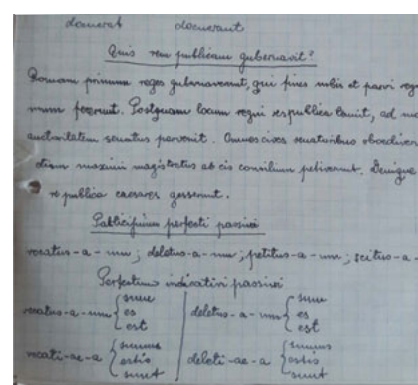 docuerat docuerant
Quis rem publicam gubernavit?
Romam primum reges gubernaverunt, qui fines urbis et parvi reg
num fecerunt. Postquam locum regni respublica tenuit, ad ma
auctoritatem senatus pervenit. Omnes cives senatoribus oboediver
etiam maximi magistratus ab eis consilium petiverunt. Denique
re publica caesares gesserunt.
Participium perfecti passivi
vocatus-a-um; deletus-a-um; petitus-a-um; scitus-a-
Perfectum indicativi passivi
vocatus-a-um { sum deletus-a-um { sum
es es
est est
vocati-ae-a { sumus deleti-ae-a { sumus
estis estis
sunt sunt